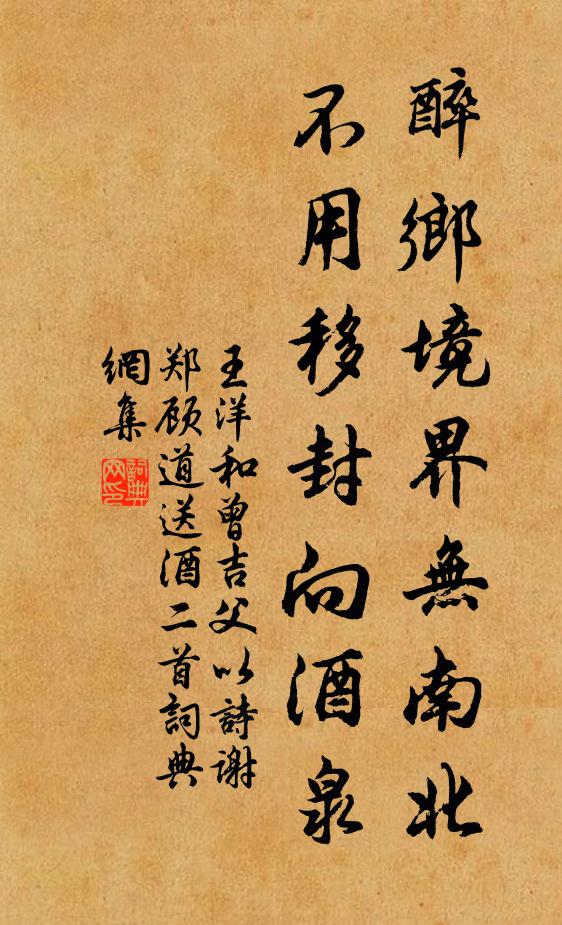 醉鄉境界無南北
不用移封向酒泉
王洋和曾吉父以詩謝
郑顾道送酒二首詞典
網集
詞典
网印